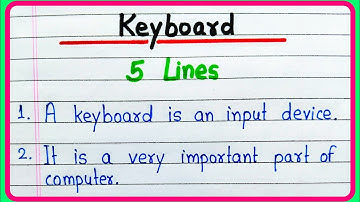 Keyboard
5 Lines
1. A keyboard is an input device.
2. It is a very important part of
computer.